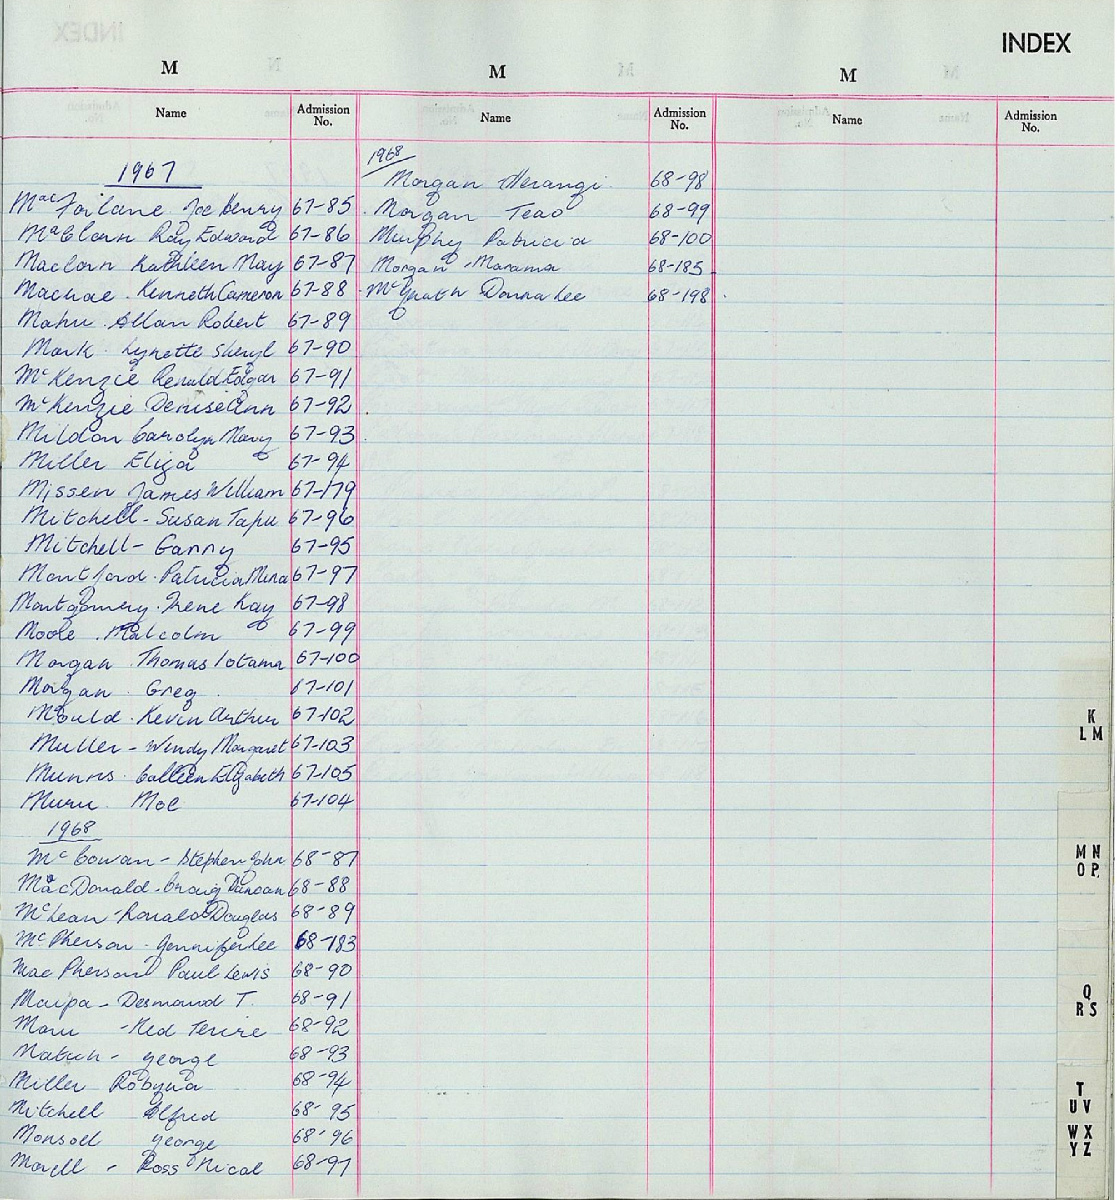 INDEX
M
Name
Admission No.
1967
MacFarlane Joe Henry 67-85
Roy Edward 67-86
Kathleen May 67-87
Kenneth Cameron 67-88
Mahu. Allan Robert 67-89
Mark. Lynette Sheryl 67-90
McKenzie Ronald Edgar 67-91
McKenzie Denise Ann 67-92
Mildon Carolyn Mary 67-93
Miller Eliza 67-94
Missen James William 67-179
Mitchell - Susan Tapu 67-96
Mitchell - Garry 67-95
Montford. Patricia Mina 67-97
Montgomery. Irene Kay 67-98
Moore. Malcolm 67-99
Morgan Thomas Iotama 67-100
Morgan. Greg. 67-101
Kevin Arthur 67-102
Muller - Wendy Margaret 67-103
Munns. Colleen Elizabeth 67-105
Muru. Moe 67-104
1968
McCowan - Stephen John 68-87
MacDonald. Craig Duncan 68-88
McLean - Ronald Douglas 68-89
McPherson - Jennifer Lee 68-183
MacPherson Paul Lewis 68-90
Maipa - Desmond T. 68-91
Maru - 68-92
George 68-93
Miller Robyna 68-94
Mitchell Alfred 68-95
George 68-96
- Ross Nical 68-97
M
Name
Admission No.
1968
Morgan Herangi. 68-98
Morgan Teao 68-99
Murphy Patricia 68-100
Morgan - Marama 68-185
McGrath Donna Lee 68-198
M
Name
Admission No.
K
L M
M N
O P
Q
R S
T
U V
W X
Y Z